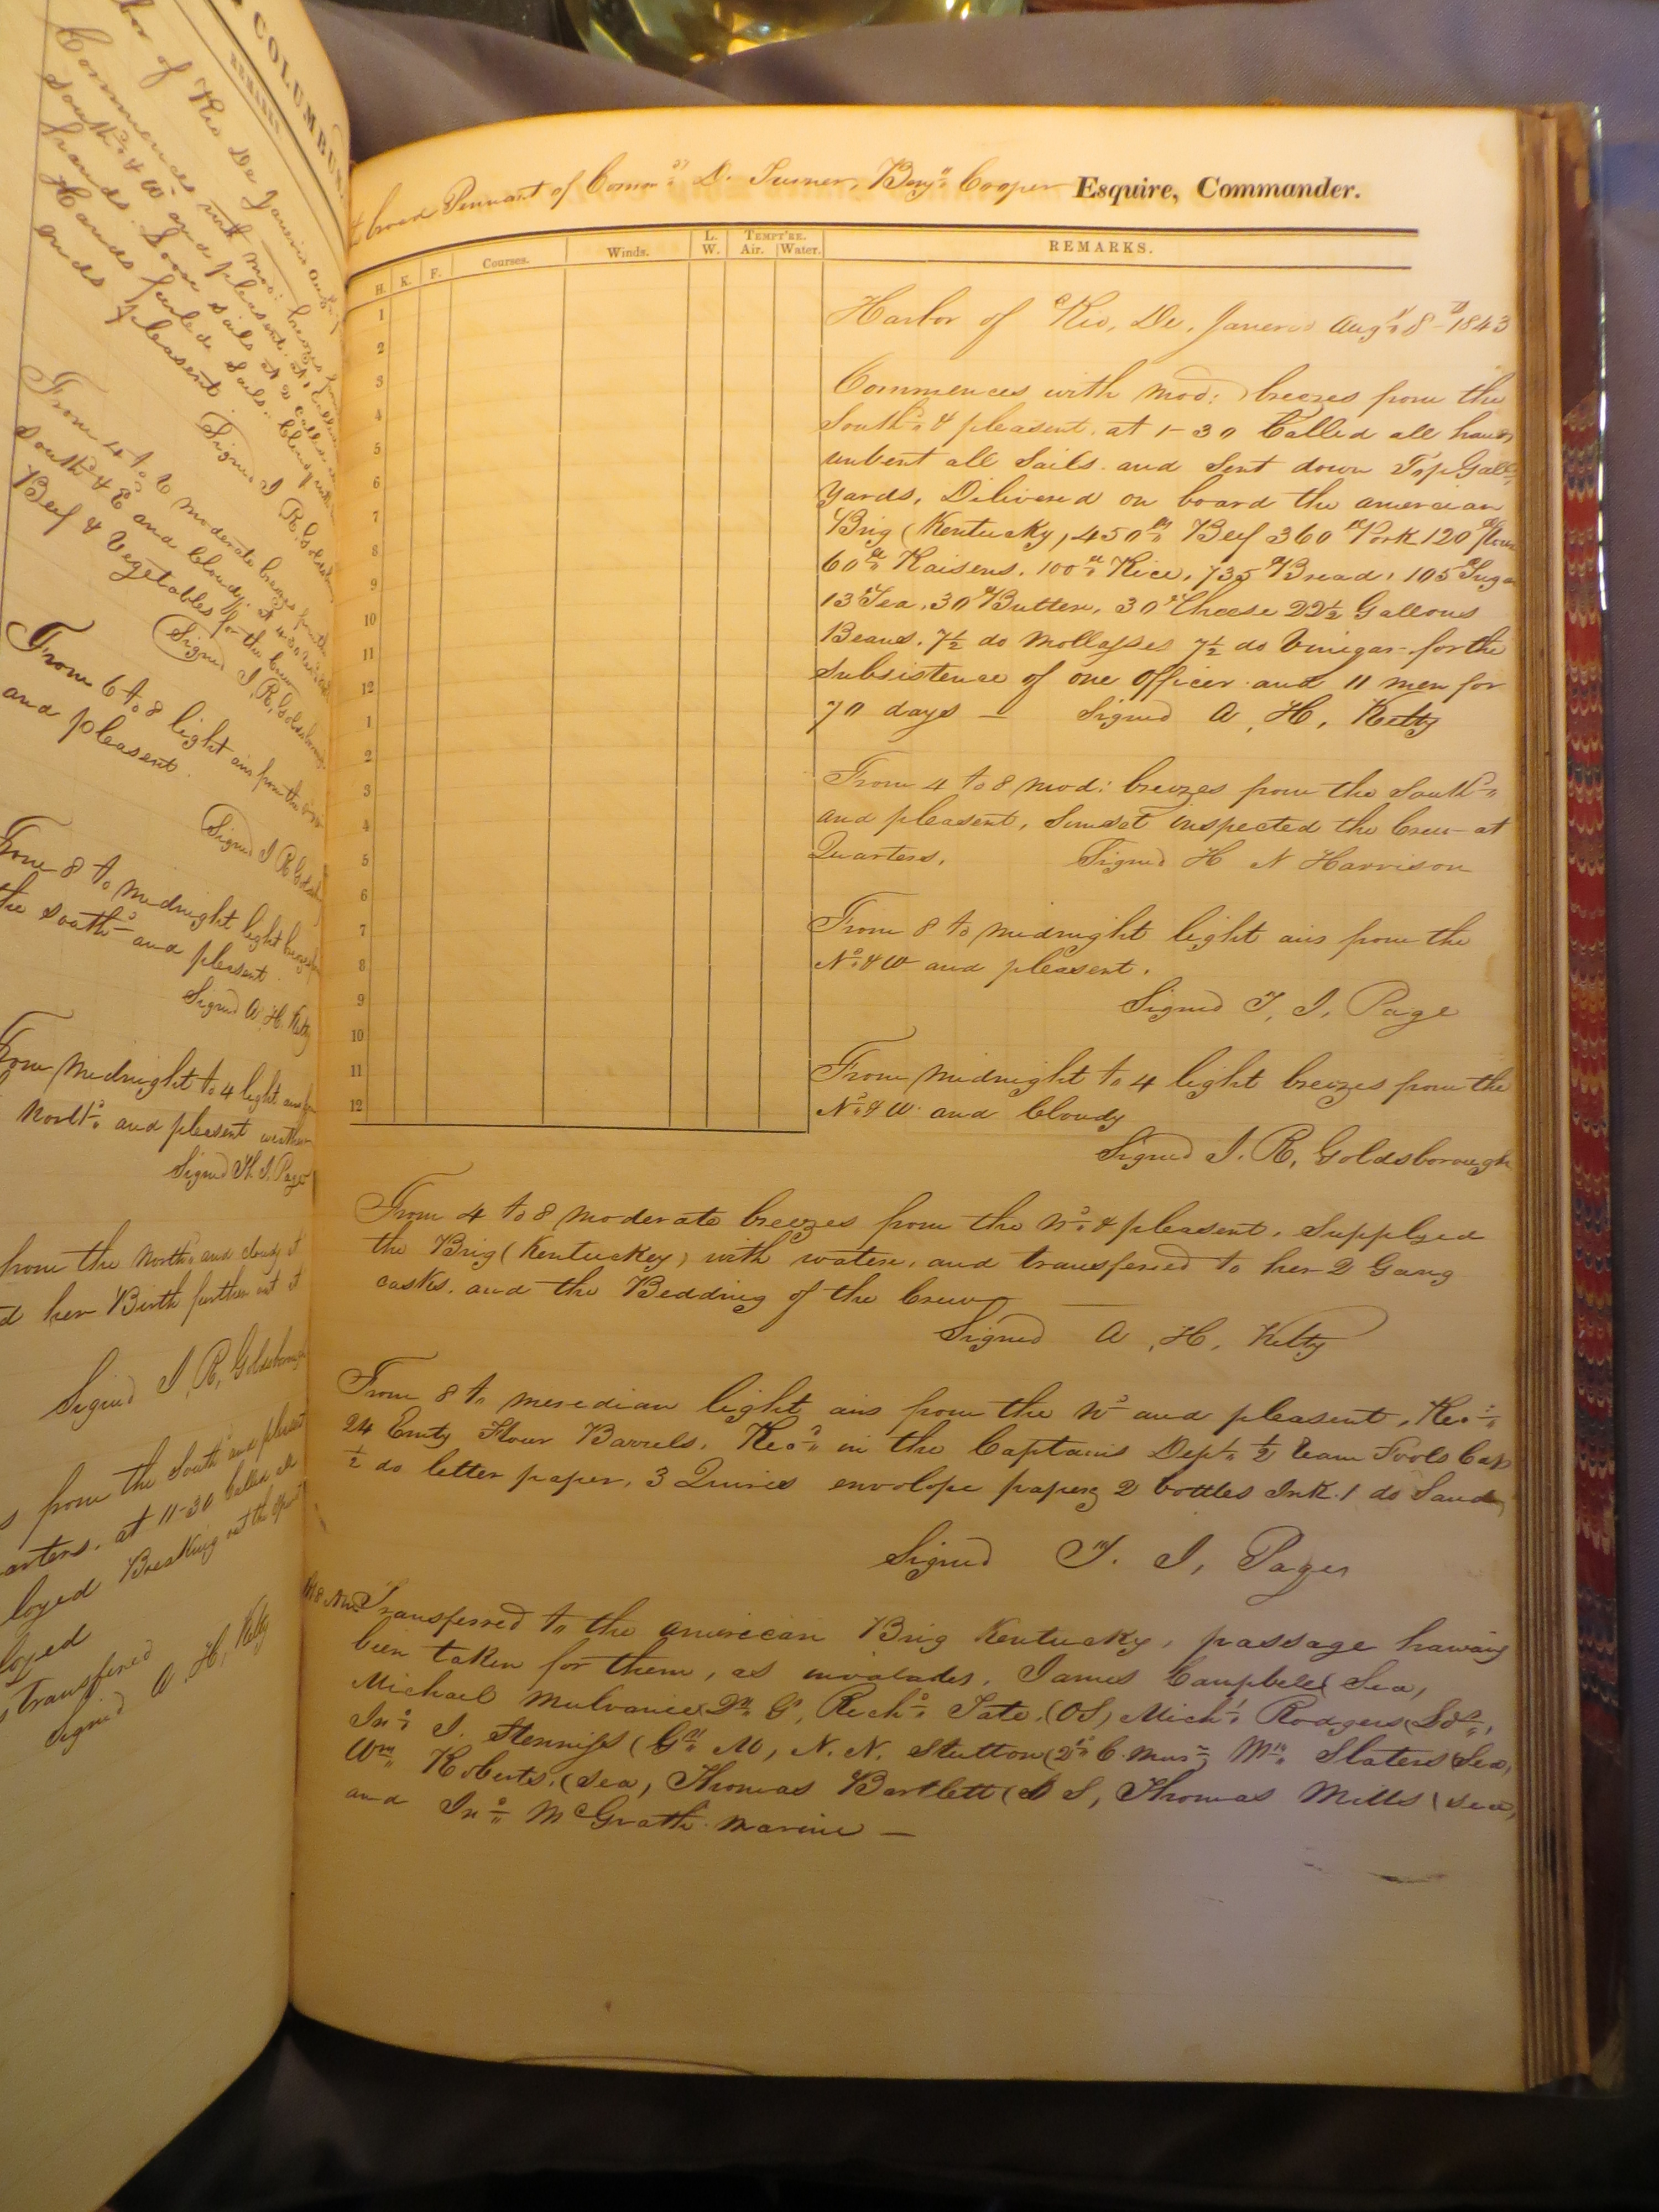 COLUMBUS.
REMARKS
of Rio De Janeiro
Commences with mod: breezes
South & W and pleasent. at
Hands furled sails.
pleasent.
Signed I R Goldsborough
From 4 to 6 moderate breezes
South & E and Cloudy. at 4-30
Beef & Vegetables for the Crew
Signed I, R, Goldsborough
From 6 to 8 light airs from the
and pleasent.
Signed I R
From 8 to midnight light
the South and pleasent.
Signed A. H. Kelty
From Midnight to 4 light airs
North and pleasent
Signed Th. I. Page
from the North and cloudy at
her Birth further out
Signed I, R, Goldsborough
from the South and pleasent
at 11-30 Called all
Breaking out the
Transfered
Signed A. H, Kelty
broad Pennant of Commo: D. Turner, Benj: Cooper Esquire, Commander.
H. K. F. Courses. Winds. L. W. TEMPT'RE. Air. Water. REMARKS.
1
2
3
4
5
6
7
8
9
10
11
12
1
2
3
4
5
6
7
8
9
10
11
12
Harbor of Rio, De, Janeiro Augt 8th 1843
Commences with mod: breezes from the
Southd & pleasent. at 1-30 Called all hands
unbent all Sails. and Sent down TopGallt
Yards, Dilivered on board the american
Brig (Kentucky, 450 lbs Beef 360 Pork 120 flour
60 Raisens. 100 Rice, 735 Bread, 105 Sugar
13 Tea. 30 Butter, 30 Cheese 22½ Gallons
Beans. 7½ do Mollasses 7½ do Vinigar for the
Subsistence of one Officer and 11 men for
70 days — Signed A, H, Kelty
From 4 to 8 mod: breezes from the Southd
and pleasent, Sunset inspected the Crew at
Quarters, Signed H N Harrison
From 8 to midnight light airs from the
Nd & W and pleasent.
Signed T, I, Page
From Midnight to 4 light breezes from the
Nd & W and Cloudy
Signed I. R, Goldsborough
From 4 to 8 moderate breezes from the Nd & pleasent, Supplyed
the Brig (Kentuckey) with water, and transfered to her 2 Gang
casks. and the Bedding of the Crew —
Signed A, H, Kelty
From 8 to meredian light airs from the Nd and pleasent, Recd
24 Emty Flour Barrels, Recd in the Captains Dept ½ ream Fools Cap
½ do letter paper, 3 Quires envolope paper, 2 bottles Ink. 1 do Sand,
Signed T. I, Page
Transferred to the american Brig Kentucky, passage haveing
been taken for them, as invalades, James Campbell (Sea,
Michael Mulvanie Qr G, Richd Tate, (OS) Michl Rodgers (
Jno J. Stenniss (Gr M, N. N. Stutton (2d C. Mus, Wm Slaters (Sea,
Wm Roberts, (Sea, Thomas Bartlett (O S, Thomas Mills (Sea,
and Jno McGrath Marine —